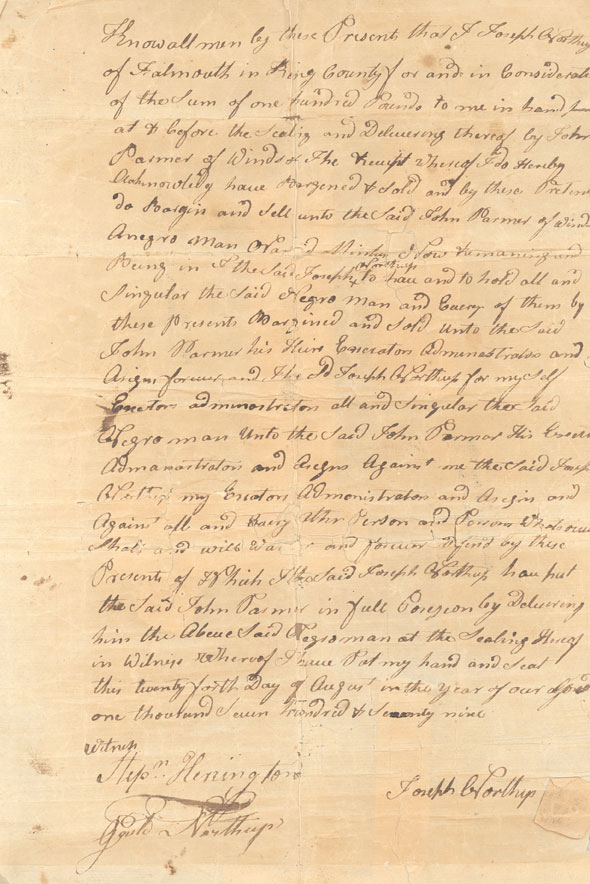 Know all men by these Presents that I Joseph Northup
of Falmouth in King County for and in Considerate
of the Sum of one hundred Pounds to me in hand
at & before the Sealig and Deluering thereof by John
Parmer of Winds The Receipt Whereof I do Hereby
Acknowledg have Bargened & Sold and by these Presen
do Bargin and Sell unto the Said John Parmer of Wind
A negro man Now Remaining and
Being in I the Said Joseph Northup to hau and to hold all and
Singular the Said Negro man and Euery of them by
these Presents Bargined and Sold Unto the Said
John Parmer his Heirs Exseators Admenastrators and
Asigns foreuer and I the Sd Joseph Northup for my Self
Exeators administrators all and Singular the Said
Negro man Unto the Said John Parmar His
Admanastrators and Asegns Against me the Said Josep
Northup my Exeators Admonistrators and Asegin and
Against all and Euery Uthr Person and Persons Whatsoeue
Shall and will and foreuer Defend by these
Presents of Which I the Said Joseph Northup hau put
the Said John Parmer in full Posezion by Deluering
him the Aboue Said Negro man at the Sealing Hereof
in Witness Whereof I haue Pat my hand and Seal
this twenty forth Day of August in the Year of our
one thousand Seuen Hundred & Seuenty nine
Witness
Stepn. Herrington
Joseph Northup
Gould Northup